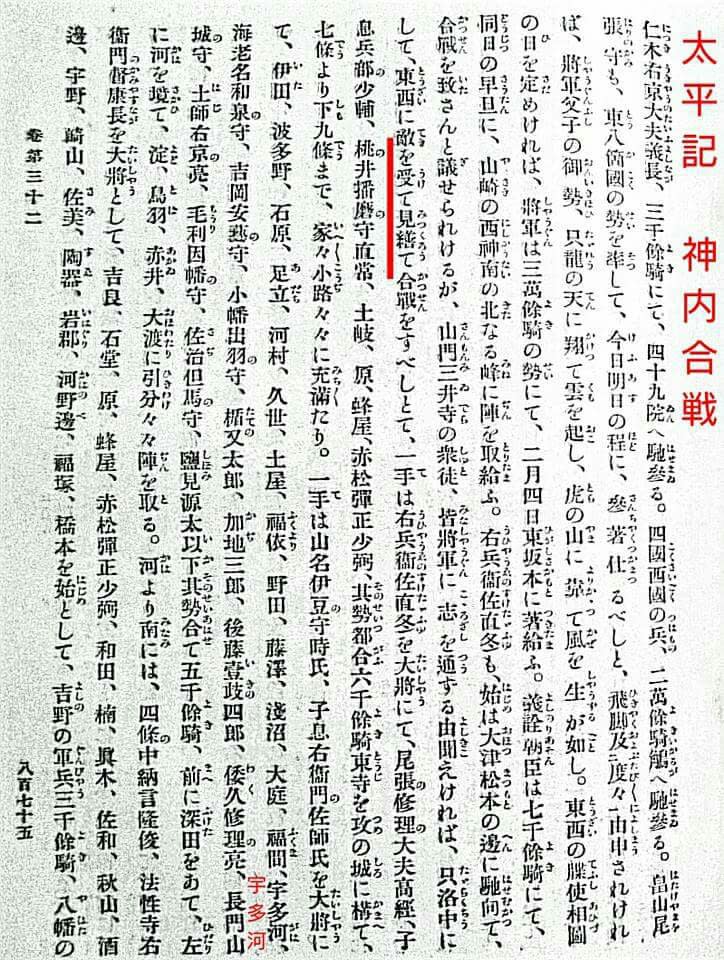 太平記 神内合戦
仁木右京大夫義長、三千餘騎にて、四十九院へ馳參る。四國西國の兵、二萬餘騎鵤へ馳參る。畠山尾
張守も、東八箇國の勢を率して、今日明日の程に、參著仕るべしと、飛脚及二度々一由申されけれ
ば、將軍父子の御勢、只龍の天に翔て雲を起し、虎の山に靠て風を生が如し。東西の牒使相圖
の日を定めければ、將軍は三萬餘騎の勢にて、二月四日東坂本に著給ふ。義詮朝臣は七千餘騎にて、
同日の早旦に、山崎の西神南の北なる峰に陣を取給ふ。右兵衞佐直冬も、始は大津松本の邊に馳向て、
合戰を致さんと議せられけるが、山門三井寺の衆徒、皆將軍に志を通する由聞えければ、只洛中に
して、東西に敵を受て見繕て合戰をすべしとて、一手は右兵衞佐直冬を大將にて、尾張修理大夫高經、子
息兵部少輔、桃井播磨守直常、土岐、原、蜂屋、赤松彈正少弼、其勢都合六千餘騎東寺を攻の城に構て、
七條より下九條まで、家々小路々々に充滿たり。一手は山名伊豆守時氏、子息右衞門佐師氏を大將に
て、伊田、波多野、石原、足立、河村、久世、土屋、福依、野田、藤澤、淺沼、大庭、福間、宇多河、
海老名和泉守、吉岡安藝守、小幡出羽守、楯又太郎、加地三郎、後藤壹岐四郎、倭久修理亮、長門山
城守、土師右京亮、毛利因幡守、佐治但馬守、鹽見源太以下其勢合て五千餘騎、前に深田をあて、左
に河を境て、淀、鳥羽、赤井、大渡に引分々々陣を取る。河より南には、四條中納言隆俊、法性寺右
衞門督康長を大將として、吉良、石堂、原、蜂屋、赤松彈正少弼、和田、楠、眞木、佐和、秋山、酒
邊、宇野、崎山、佐美、陶器、岩郡、河野邊、福塚、橋本を始として、吉野の軍兵三千餘騎、八幡の
宇多河
卷第三十二
八百七十五